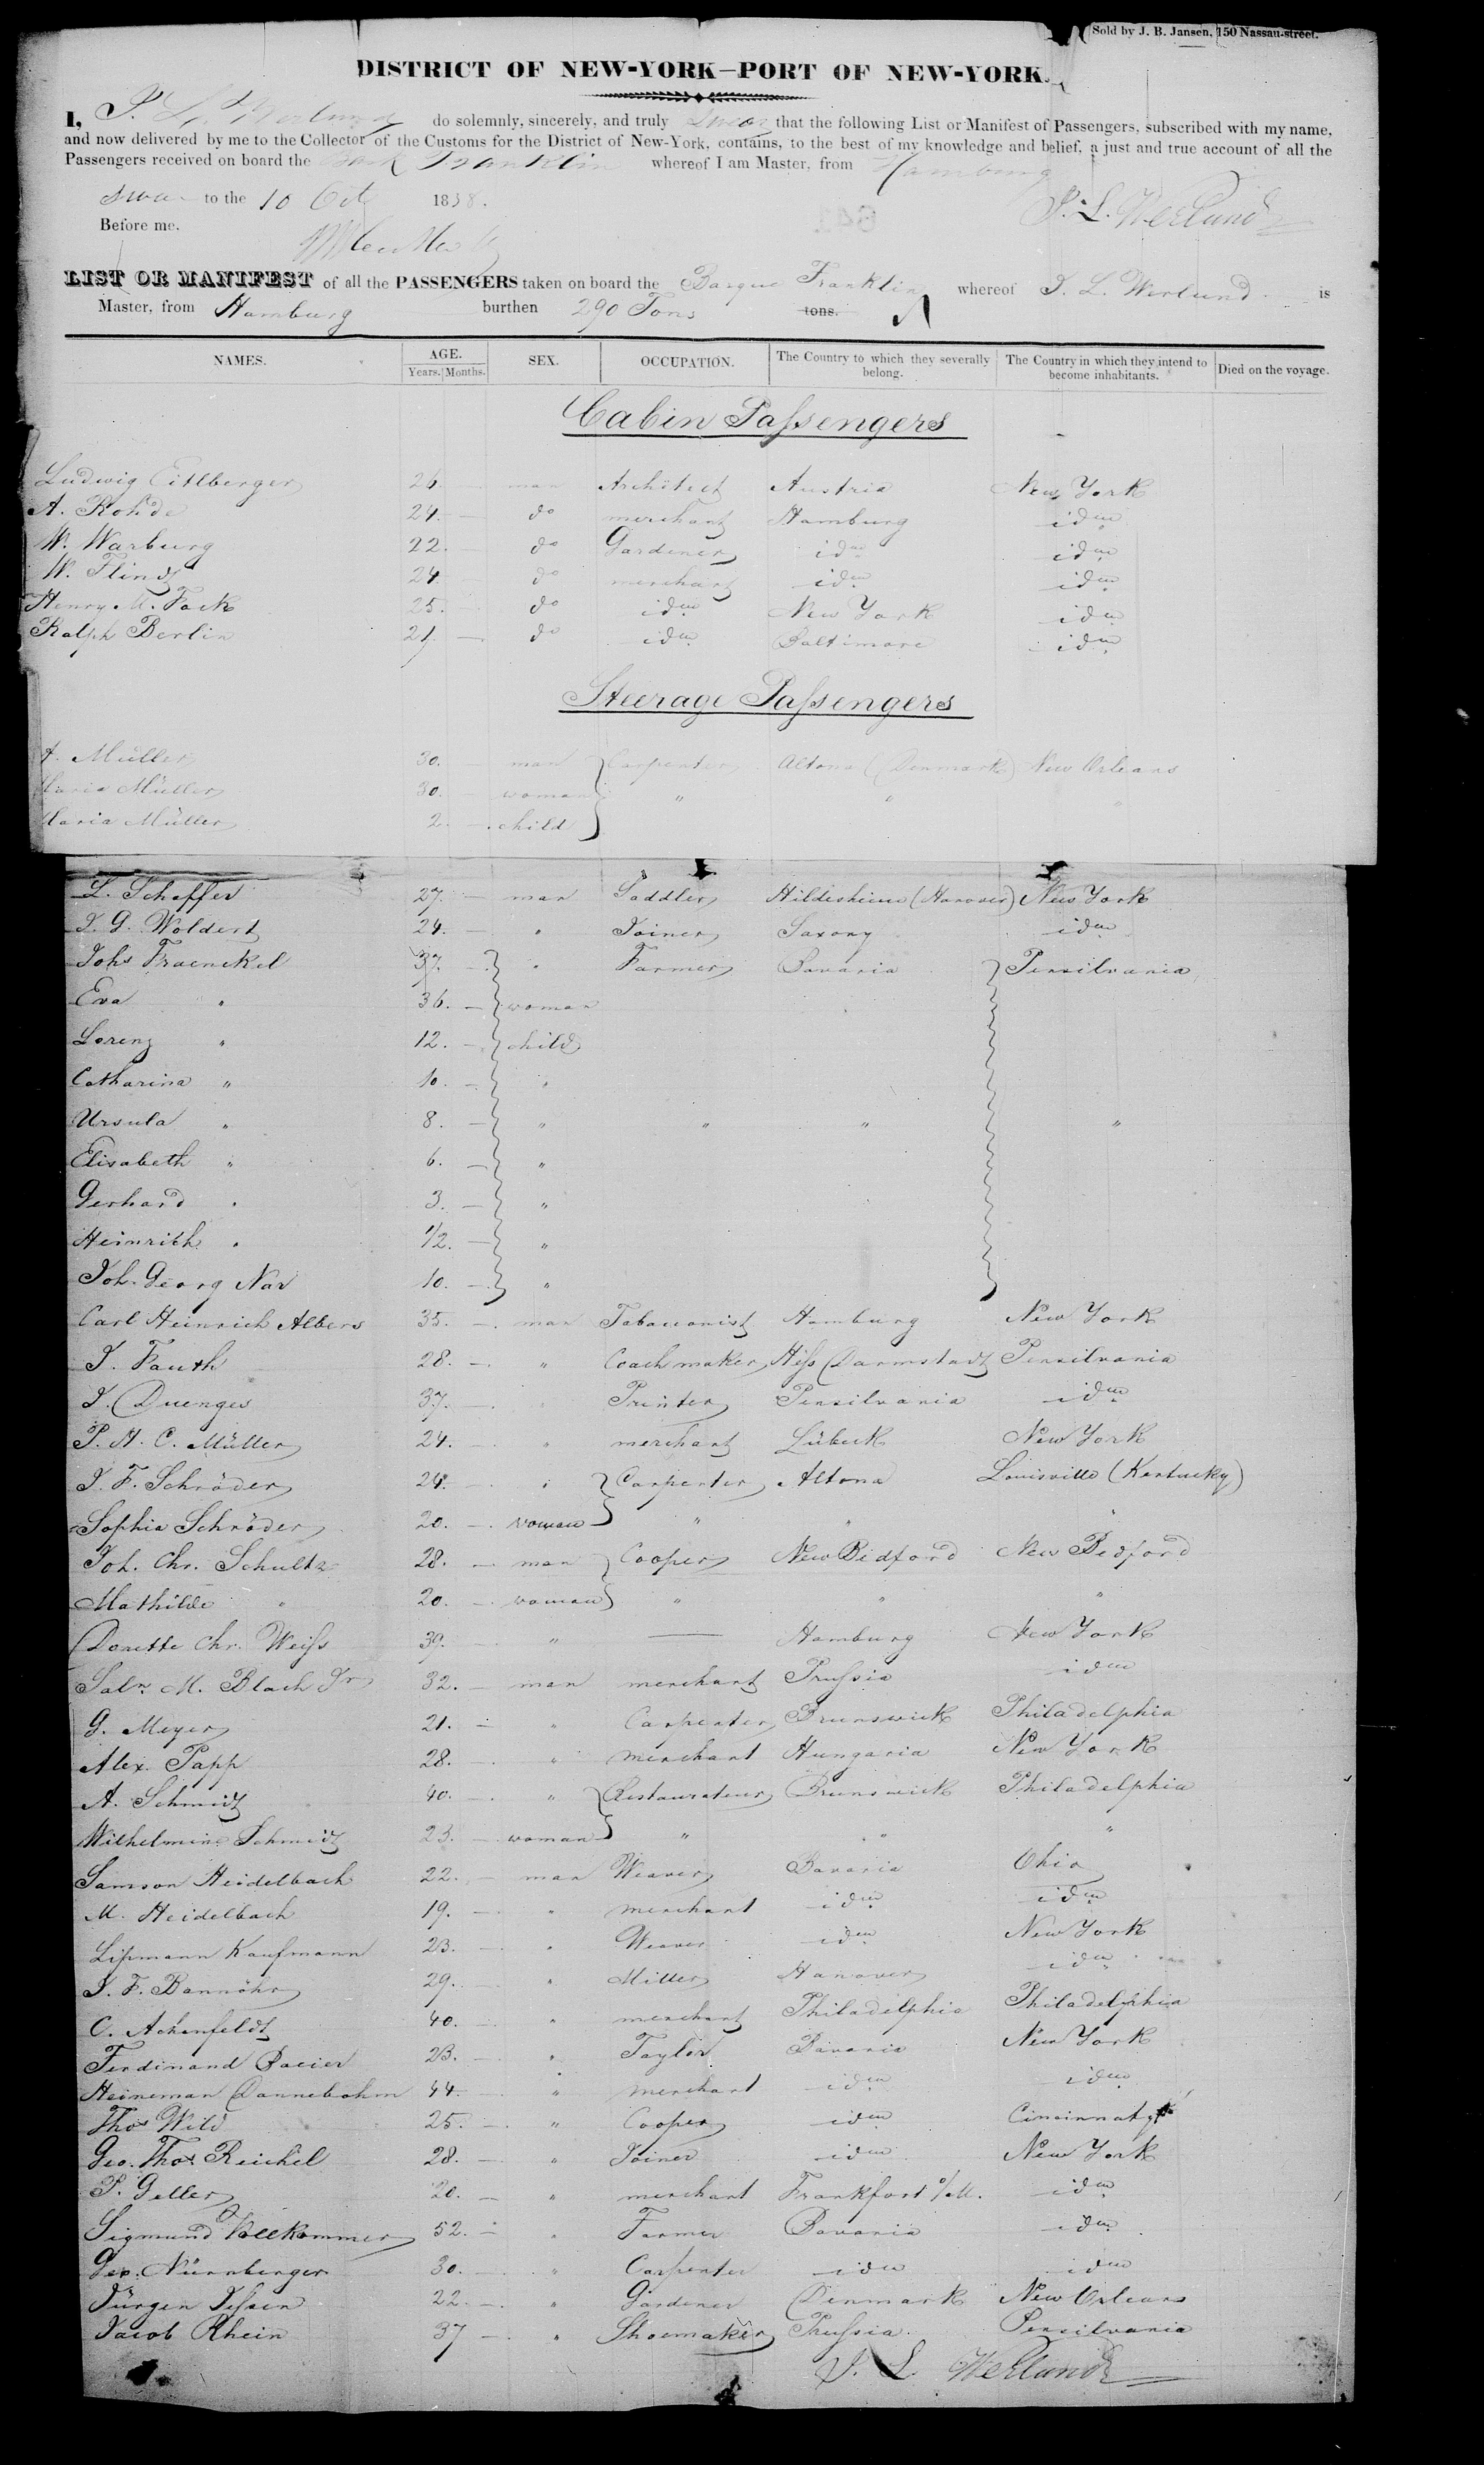 Sold by J. B. Jansen, 150 Nassau-street.
DISTRICT OF NEW-YORK—PORT OF NEW-YORK.
I, do solemnly, sincerely, and truly swear that the following List or Manifest of Passengers, subscribed with my name,
and now delivered by me to the Collector of the Customs for the District of New-York, contains, to the best of my knowledge and belief, a just and true account of all the
Passengers received on board the Bark Franklin whereof I am Master, from Hamburg
to the 10 Oct 1838.
Before me. J. L. Werlund
LIST OR MANIFEST of all the PASSENGERS taken on board the Barque Franklin whereof J. L. Werlund is
Master, from Hamburg burthen 290 Tons tons.
NAMES. AGE. Years. Months. SEX. OCCUPATION. The Country to which they severally belong. The Country in which they intend to become inhabitants. Died on the voyage.
Cabin Passengers
Ludwig Eitlberger 26. — man Architect Austria New York
A. Rohde 24. — do merchant Hamburg idem
W. Warburg 22. — do Gardener idem idem
W. Flindt 24 — do merchant idem idem
Henry M. Fack 25. — do idem New York idem
Ralph Berlin 21. — do idem Baltimore idem
Steerage Passengers
Müller 30. — man Carpenter Altona (Denmark) New Orleans
Maria Müller 30. — woman " " "
Maria Müller 2. — child
L. Schaffer 27. — man Saddler Hildesheim (Hanover) New York
J. G. Woldert 24. — " Joiner Saxony idem
Johs Fraenckel 37. — " Farmer Bavaria Pensilvania
Eva " 36. — woman
Lorenz " 12. — child
Catharina " 10. — "
Ursula " 8. — " " " "
Elisabeth " 6. — "
Gerhard " 3. — "
Heinrich " 1/2. — "
Joh. Georg Nar 10. — "
Carl Heinrich Albers 35. — man Tobacconist Hamburg New York
J. Fauth 28. — " Coach maker Hess Darmstadt Pensilvania
J. Duenges 37. — " Printer Pensilvania idem
P. H. C. Müller 24. — " merchant Lübeck New York
J. F. Schröder 24. — " Carpenter Altona Louisville (Kentucky)
Sophia Schröder 20. — woman " " "
Joh. Chr. Schultz 28. — man Cooper New Bedford New Bedford
Mathilde " 20. — woman " " "
Dorette Chr. Weiss 39. — " — Hamburg New York
Saln M. Blach Jr 32. — man merchant Prussia idem
G. Meyer 21. — " Carpenter Brunswick Philadelphia
Alex. Papp 28. — " merchant Hungaria New York
A. Schmidt 40. — " Restaurateur Brunswick Philadelphia
Wilhelmine Schmidt 23. — woman " " "
Samson Heidelbach 22. — man Weaver Bavaria Ohio
M. Heidelbach 19. — " merchant idem idem
Lipmann Kaufmann 23. — " Weaver idem New York
J. F. Bannöhr 29. — " Miller Hanover idem
C. Achenfeldt 40. — " merchant Philadelphia Philadelphia
Ferdinand Baeier 23. — " Taylor Bavaria New York
Heineman Dannebohm 44. — " merchant idem idem
Thos Wild 25. — " Cooper idem Cincinnaty
Geo. Thos Reichel 28. — " Joiner idem New York
P. Geller 20. — " merchant Frankfort o/M. idem
Sigmund Vollkommer 52. — " Farmer Bavaria idem
Geo. Nürnberger 30. — " Carpenter idem idem
Jürgen Jessen 22. — " Gardener Denmark New Orleans
Jacob Rhein 37 — " Shoemaker Prussia Pensilvania
J. L. Werlund